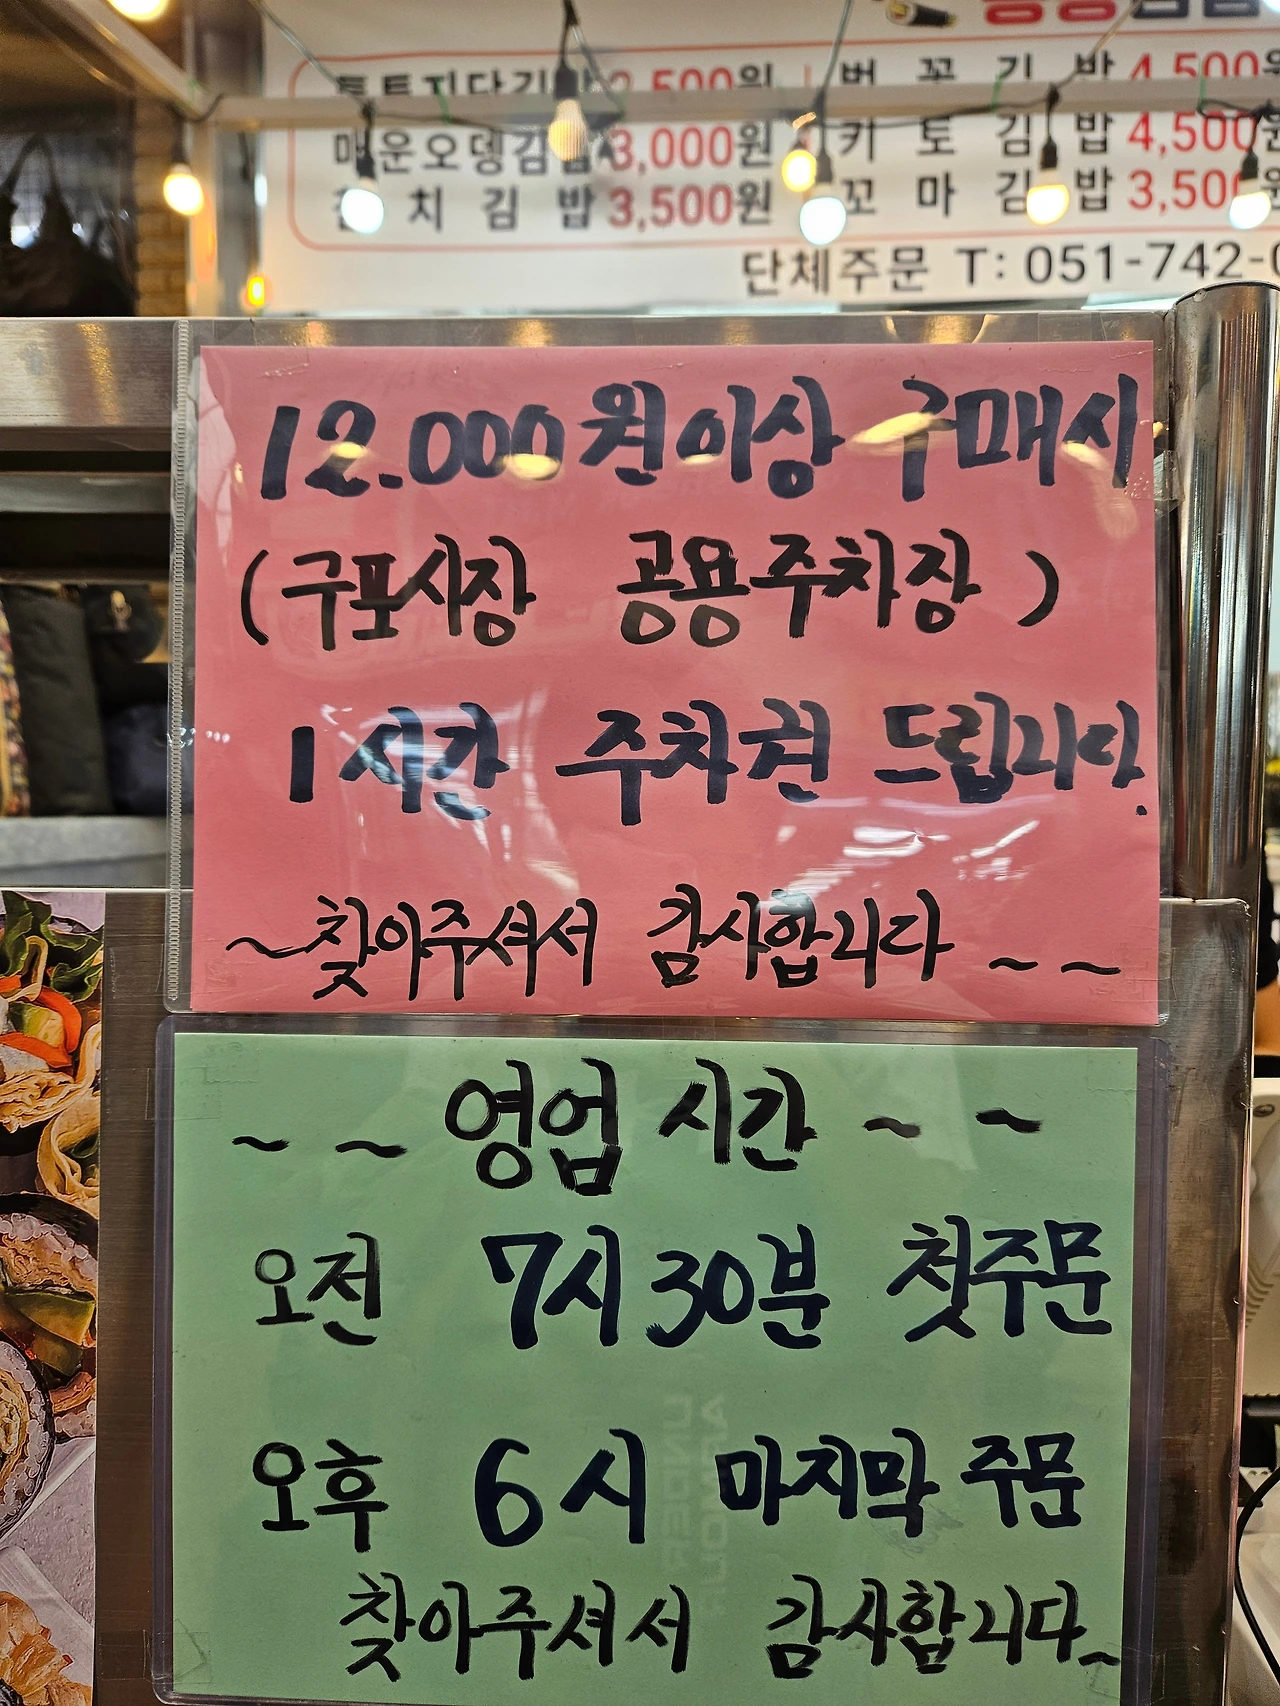 2,500원 버꼬김밥 4,500
매운오뎅김밥 3,000원 키토김밥 4,500
치김밥 3,500원 꼬마김밥 3,500
단체주문 T: 051-742-
12.000원이상 구매시
(구포시장 공용주차장)
1시간 주차권 드립니다.
~찾아주셔서 감사합니다~~
~~영업시간~~
오전 7시30분 첫주문
오후 6시 마지막 주문
찾아주셔서 감사합니다~
UNDER
ARMOUR